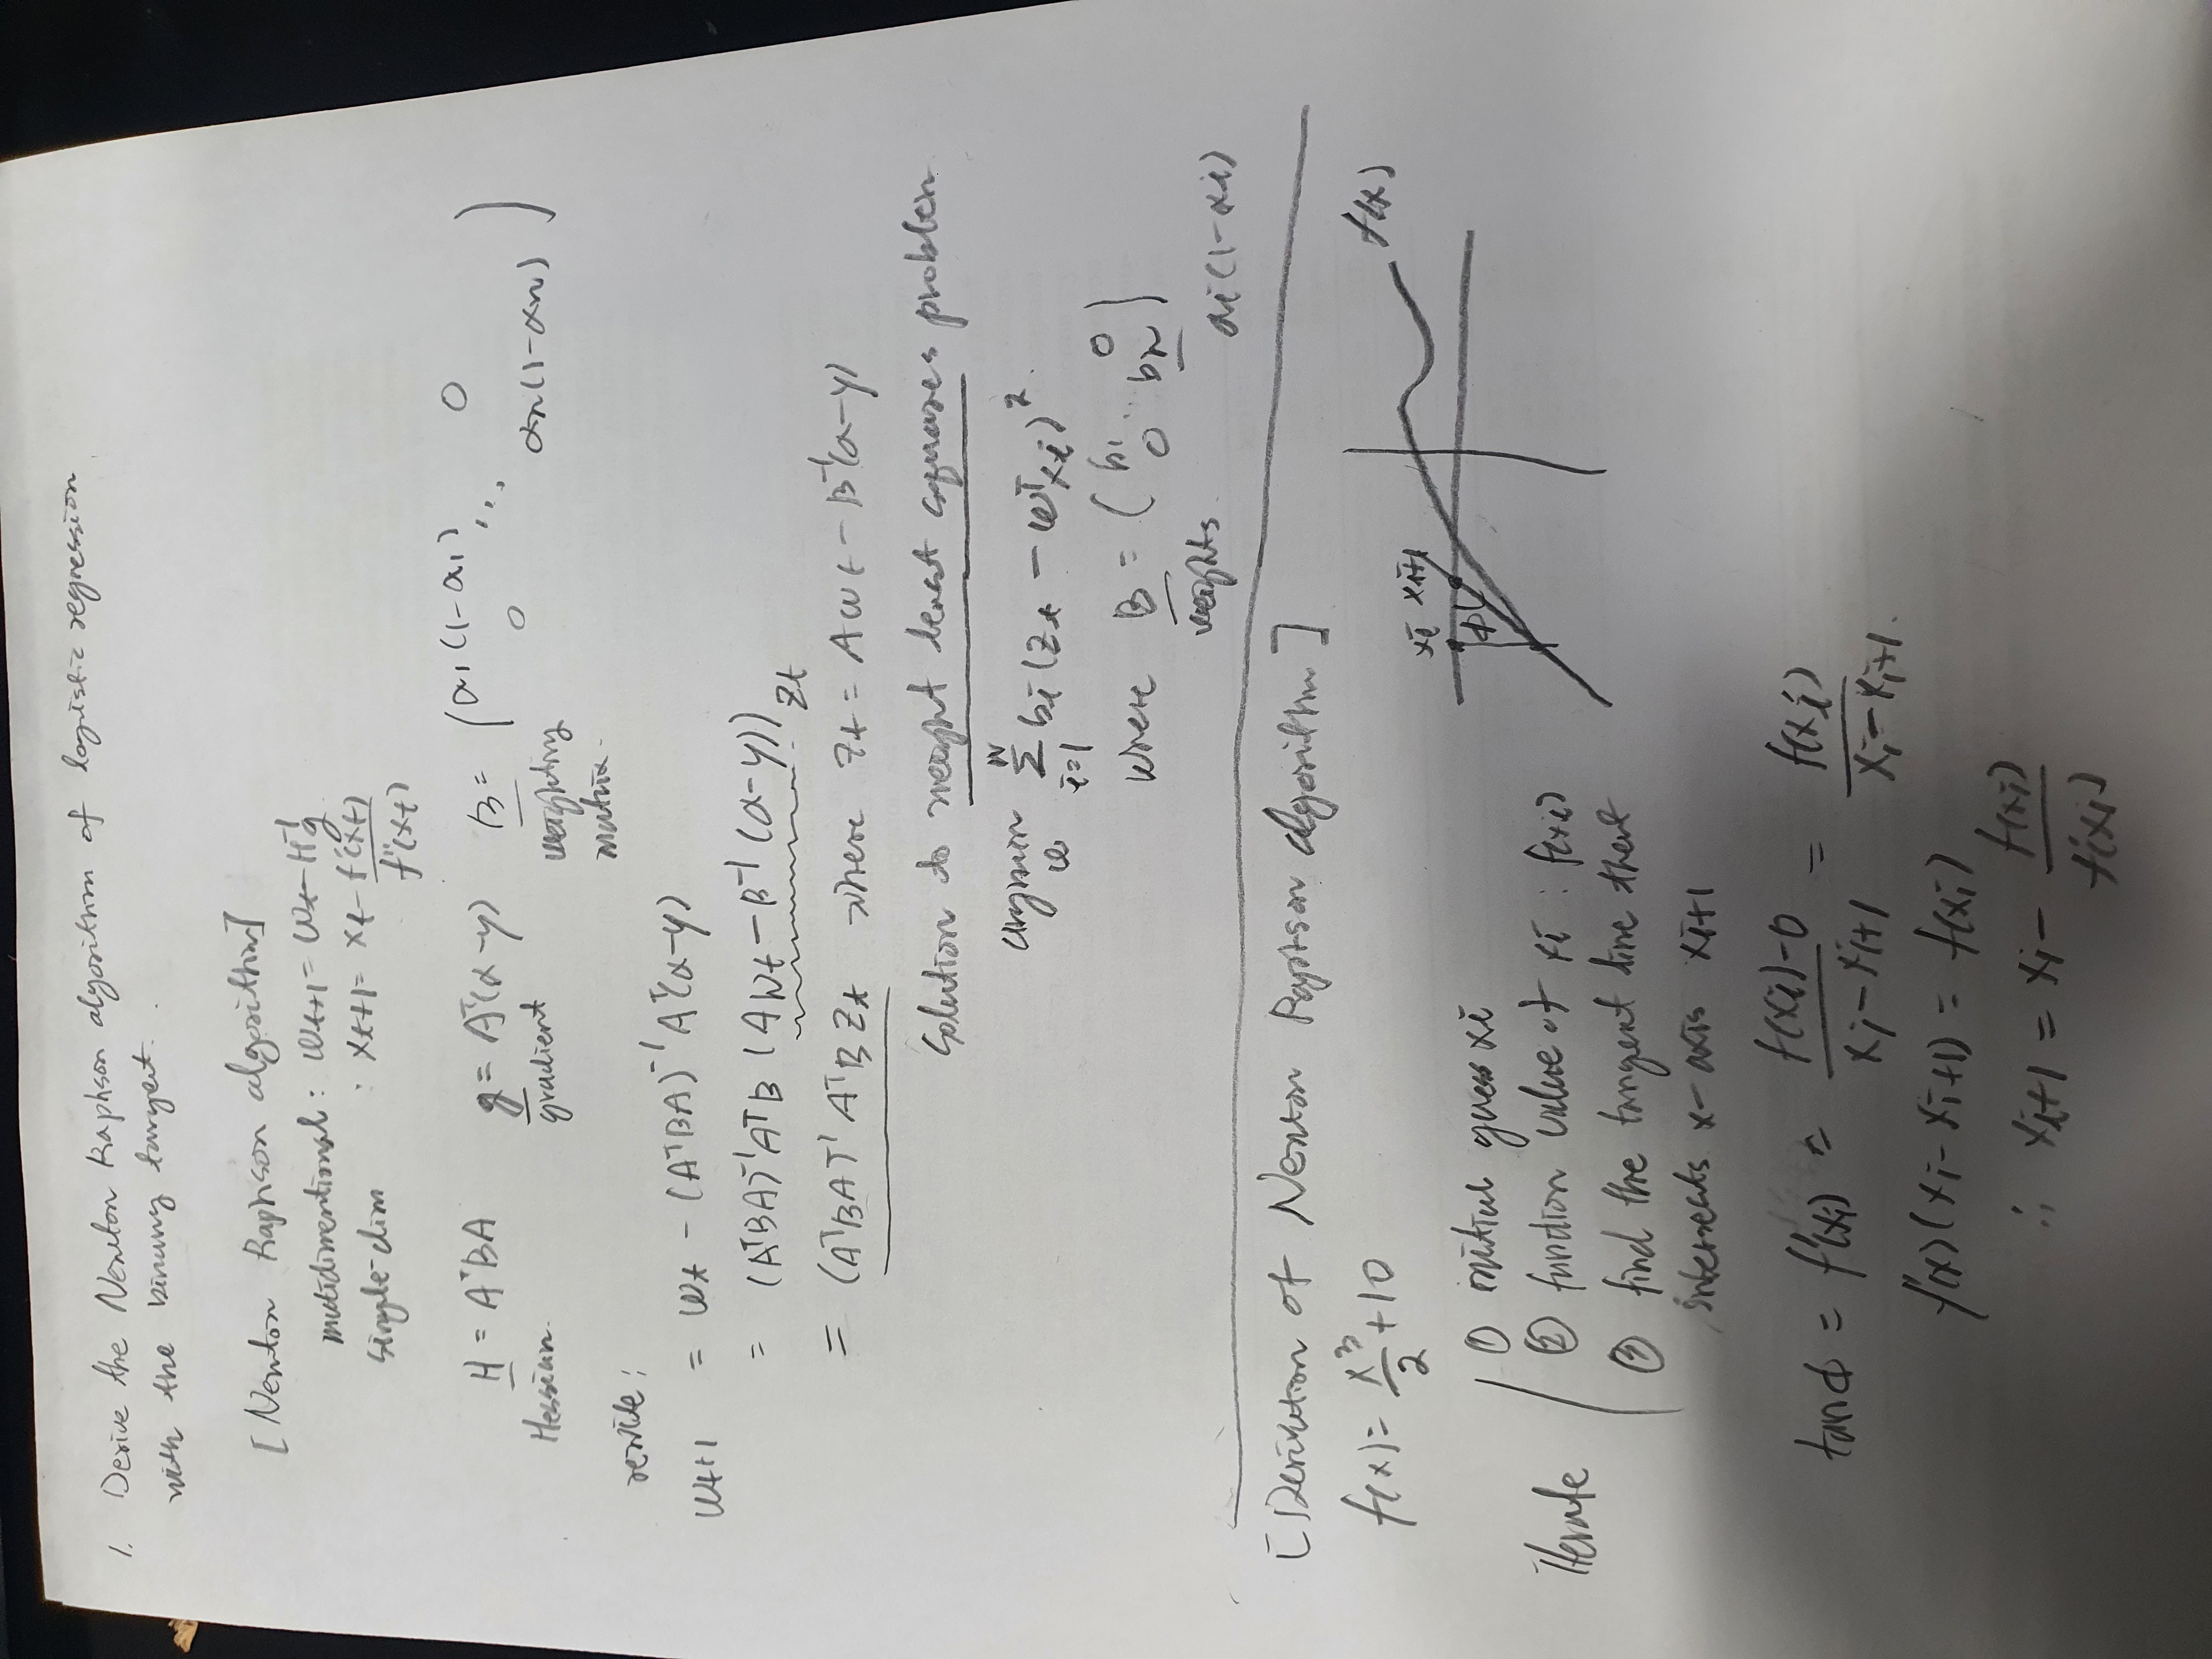 1. Derive the Newton Raphson algorithm of logistic regression
with the binary target.
[Newton Raphson algorithm]
mutidimentional: wt+1 = wt - H⁻¹g
single-dim : xt+1 = xt - f'(xt) / f''(xt)
H = AᵀBA g = Aᵀ(α-y) B = ( α1(1-α1) ⋱ 0 0 αn(1-αn) )
Hessian. gradient weighting
matrix.
rewite:
wt+1 = wt - (AᵀBA)⁻¹Aᵀ(α-y)
= (AᵀBA)⁻¹AᵀB (Awt - B⁻¹(α-y)) zt
= (AᵀBA)⁻¹AᵀB Zt where Zt = Awt - B⁻¹(α-y)
solution to weight least squares problem
argmin w Σ i=1 N bi (zt - wᵀxi)².
where B = ( b1 .. 0 0 bn )
weights. αi(1-αi)
[Derivation of Newton Raphson algorithm]
f(x) = x³/2 + 10
f(x)
xi xi+1
ϕ
Iterate
① initial guess xi
② function value of xi : f(xi)
③ find the tangent line that
intersects x-axis xi+1
tanϕ = f'(xi) = f(xi)-0 / xi-xi+1 = f(xi) / xi-xi+1.
f'(x)(xi-xi+1) = f(xi)
∴ xi+1 = xi - f(xi) / f'(xi)